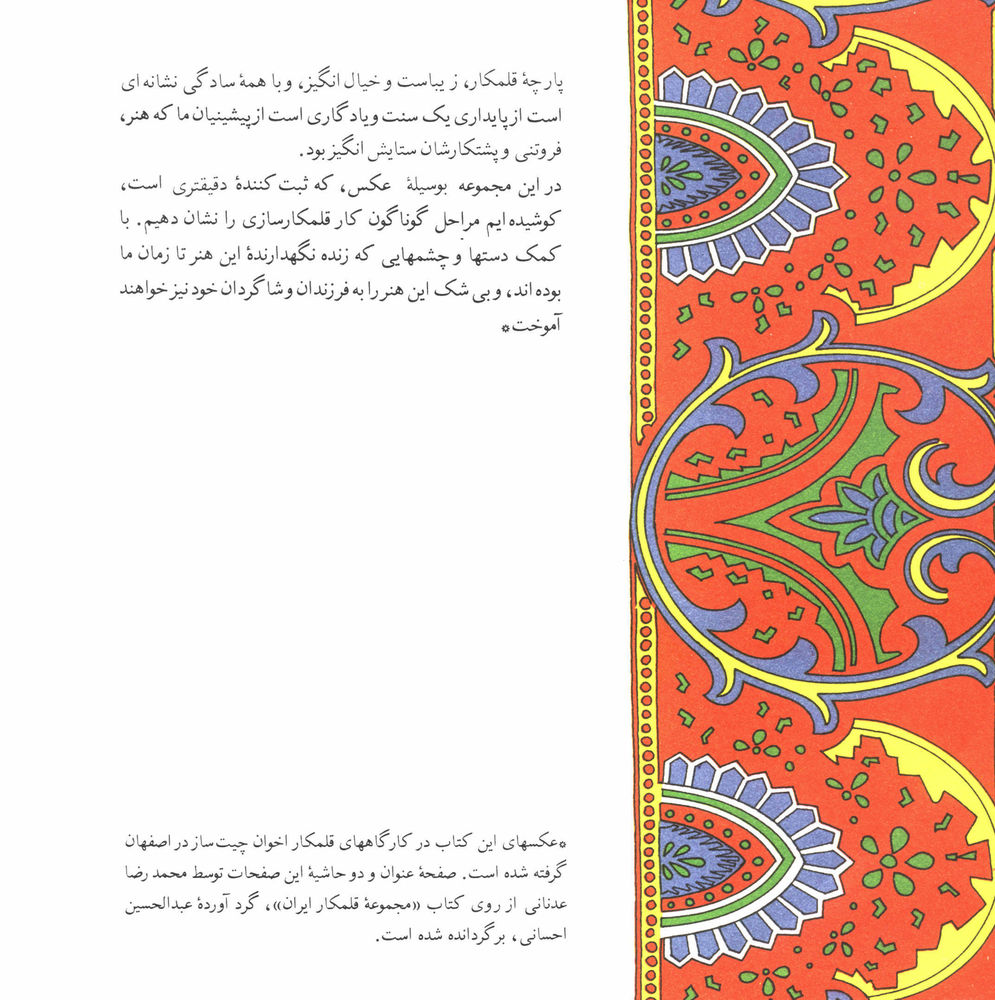 پارچهٔ قلمکار، زیباست و خیال انگیز، و با همهٔ سادگی نشانه ای
است از پایداری یک سنت و یادگاری است از پیشینیان ما که هنر،
فروتنی و پشتکارشان ستایش انگیز بود.
در این مجموعه بوسیلهٔ عکس، که ثبت کنندهٔ دقیقتری است،
کوشیده ایم مراحل گوناگون کار قلمکارسازی را نشان دهیم. با
کمک دستها و چشمهایی که زنده نگهدارندهٔ این هنر تا زمان ما
بوده اند، و بی شک این هنر را به فرزندان و شاگردان خود نیز خواهند
آموخت*
*عکسهای این کتاب در کارگاههای قلمکار اخوان چیت ساز در اصفهان
گرفته شده است. صفحهٔ عنوان و دو حاشیهٔ این صفحات توسط محمد رضا
عدنانی از روی کتاب «مجموعهٔ قلمکار ایران»، گرد آوردهٔ عبدالحسین
احسانی، برگردانده شده است.